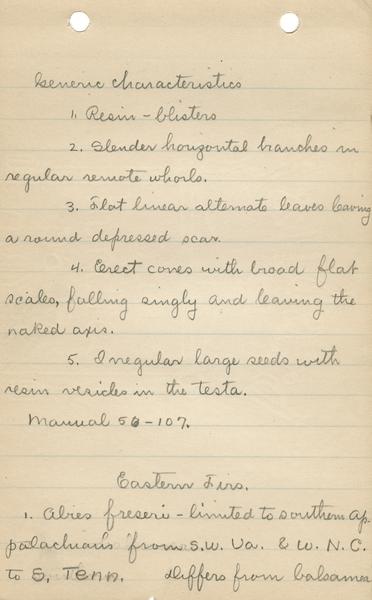 Generic Characteristics
1. Resin-blisters
2. Slender horizontal branches in
regular remote whorls.
3. Flat linear alternate leaves leaving
a round depressed scar.
4. Erect cones with broad flat
scales, falling singly and leaving the
naked axis.
5. Irregular large seeds with
resin vesicles in the testa.
Manual 56-107.
Eastern Firs.
1. Abies freseri - limited to southern Ap-
palachians from S.W. Va. & W. N.C.
to S. Tenn. Differs from balsamea